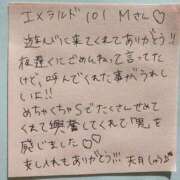 エメラルド 101 Mさん♡
遊んびに来てくれてありがとう!!
夜遅くにごめんねって言ってた
けど、呼んでくれた事がうれし
いよ!!
めちゃくちゃSでたくさんせめて
くれて興奮してくれて「男」を
感じました♡♡
差し入れもありがとう!!!